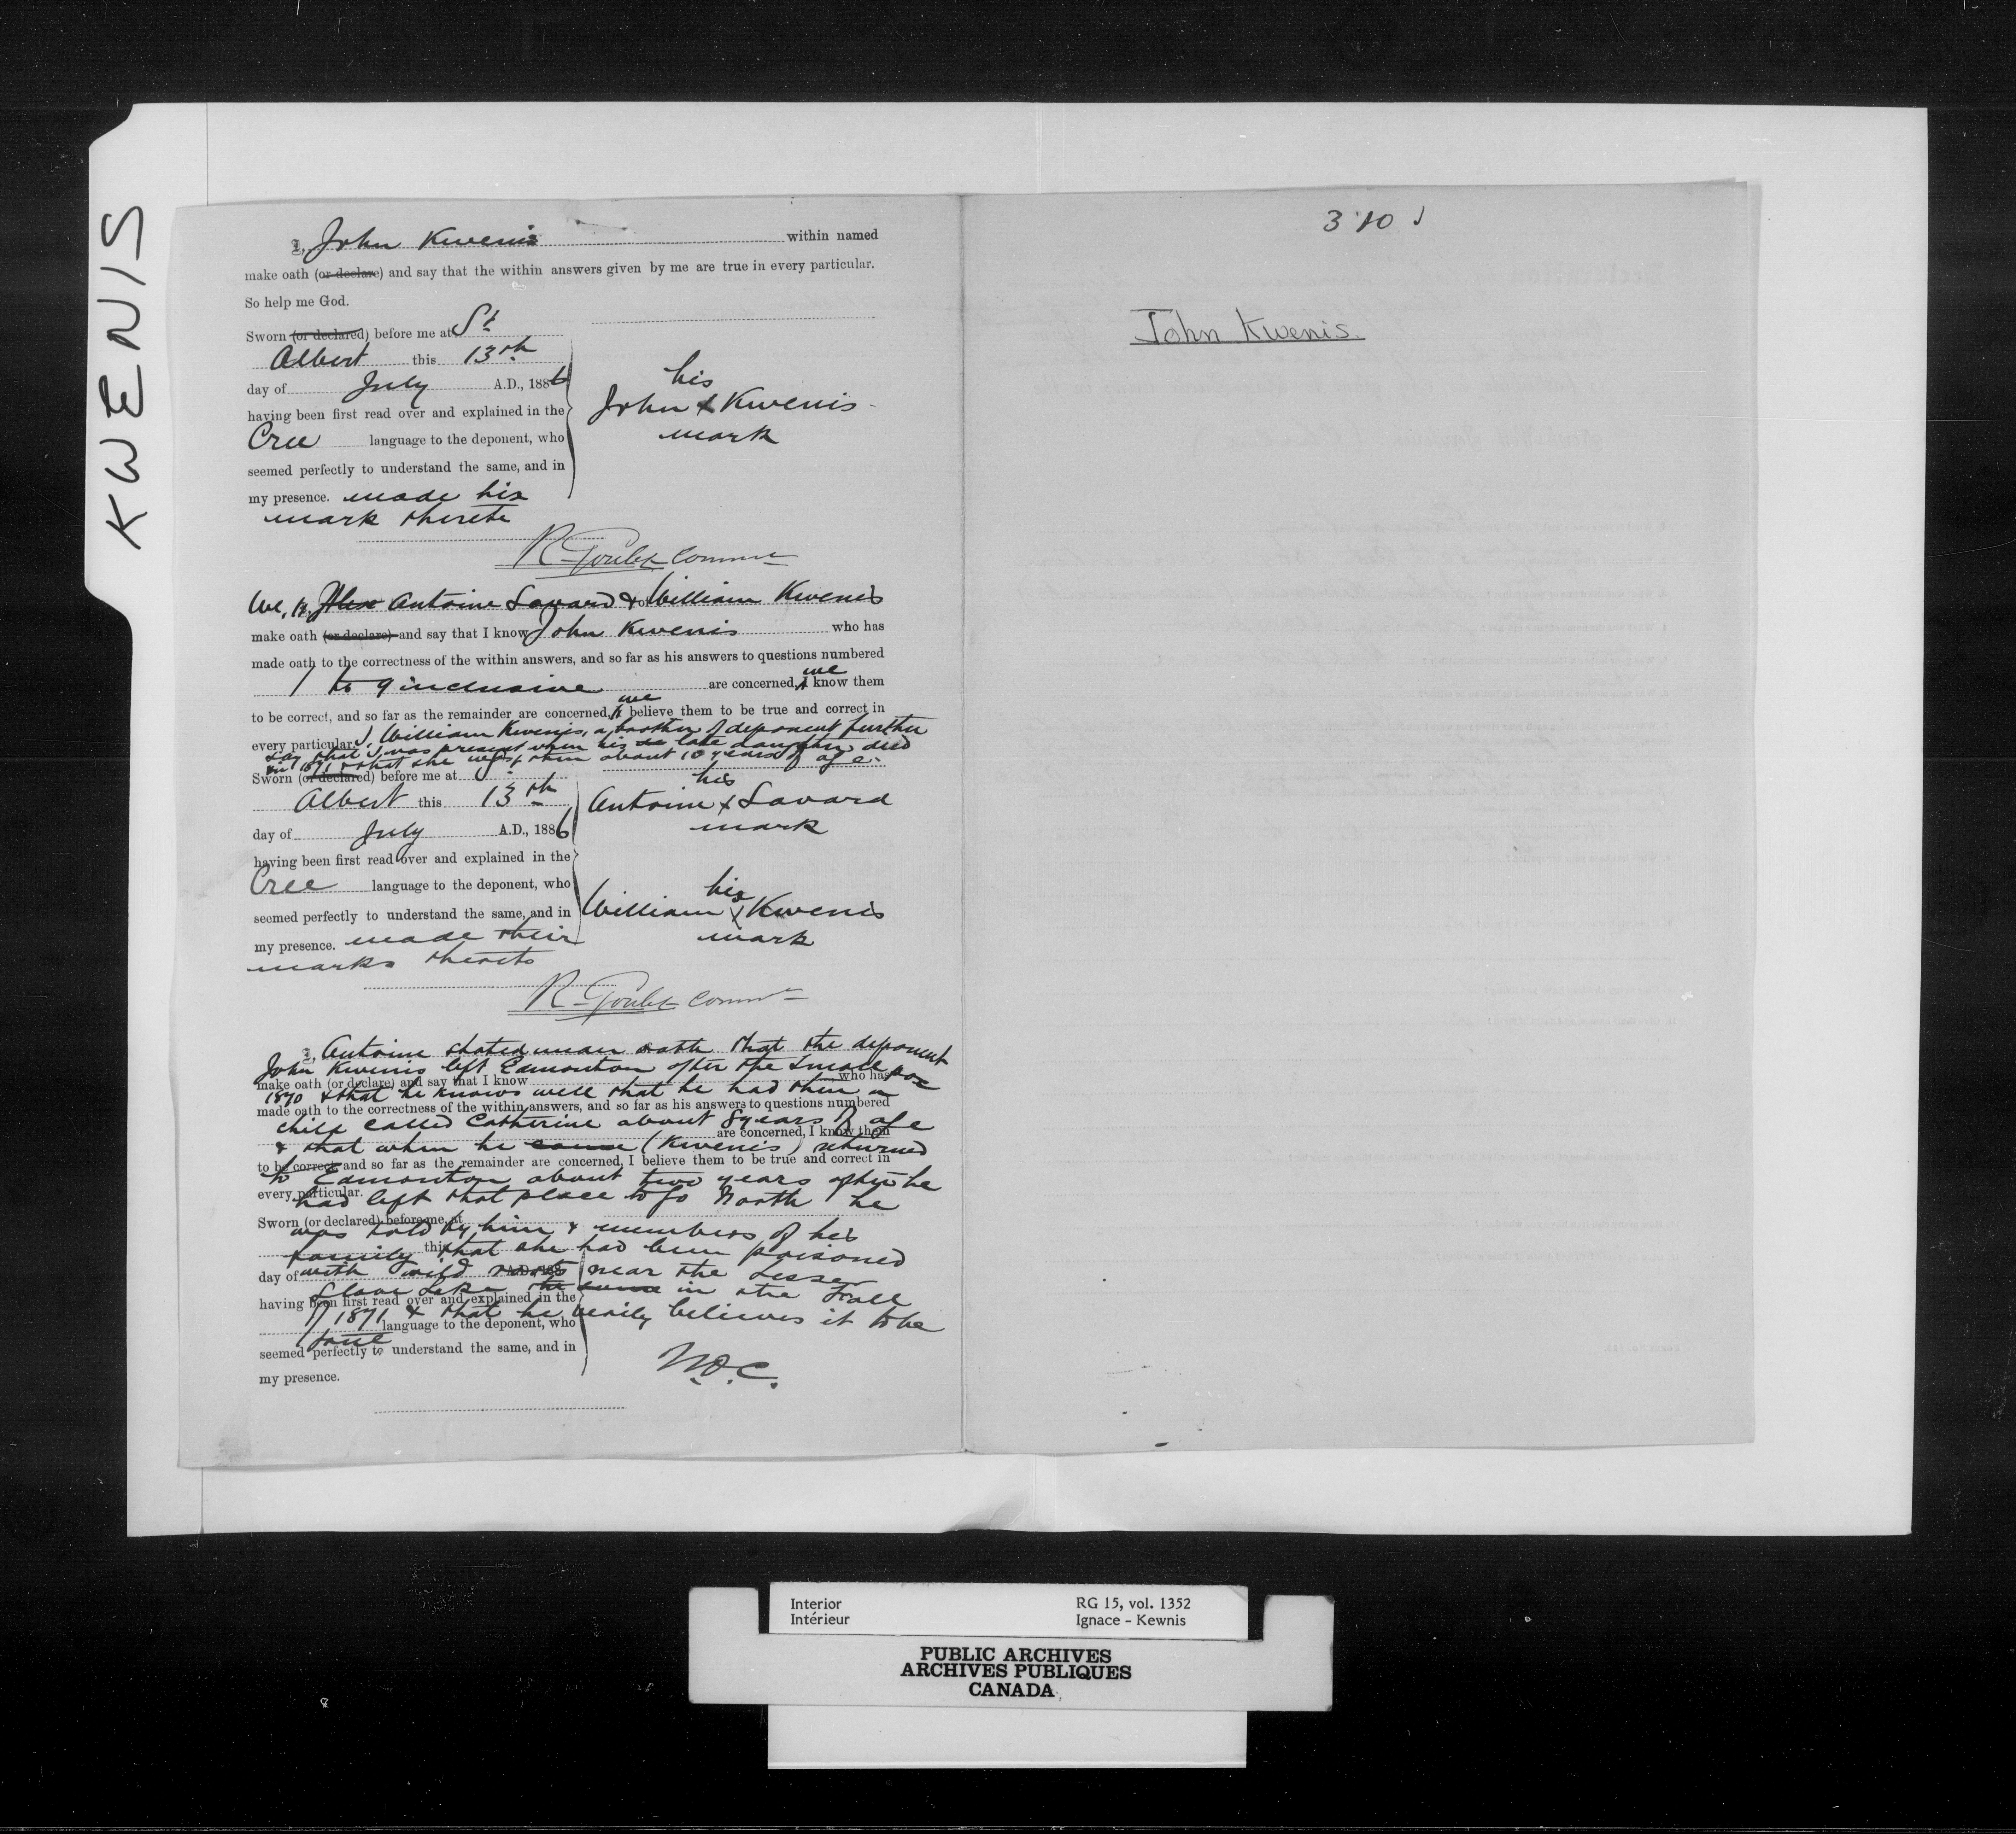 KWENIS
I, John Kwenis within named
make oath (or declare) and say that the within answers given by me are true in every particular.
So help me God.
Sworn (or declared) before me at St
Albert this 13th
day of July A.D., 1886
having been first read over and explained in the
Cree language to the deponent, who
seemed perfectly to understand the same, and in
my presence. made his
mark thereto
his
John x Kwenis
mark
R. Goulet Commr
We, Antoine Savard & William Kwenis
make oath (or declare) and say that I know John Kwenis who has
made oath to the correctness of the within answers, and so far as his answers to questions numbered
1 to 9 inclusive are concerned, I we know them
to be correct, and so far as the remainder are concerned, I we believe them to be true and correct in
every particular. I, William Kwenis, a brother of deponent further
say that I was present when his late daughter died
in 1871 & that she was then about 10 years of age.
Sworn (or declared) before me at St
Albert this 13th
day of July A.D., 1886
having been first read over and explained in the
Cree language to the deponent, who
seemed perfectly to understand the same, and in
my presence. made their
marks thereto
his
Antoine x Savard
mark
his
William x Kwenis
mark
R. Goulet Commr
I, Antoine stated under oath that the deponent
John Kwenis left Edmonton after the Small pox
make oath (or declare) and say that I know who has
1870 & that he knows well that he had then a
made oath to the correctness of the within answers, and so far as his answers to questions numbered
child called Catherine about 8 years of age
are concerned, I know them
& that when he came (Kwenis) returned
to be correct and so far as the remainder are concerned, I believe them to be true and correct in
to Edmonton about two years after he
every particular.
had left that place to go North he
Sworn (or declared) before me at
was told by him & members of his
family that she had been poisoned
this
day of A.D. 188
with wild roots near the Lesser
Slave Lake in the Fall
having been first read over and explained in the
of 1871 & that he verily believes it to be
language to the deponent, who
true
seemed perfectly to understand the same, and in
my presence.
N.O.C.
3 10
John Kwenis.
Interior
Intérieur
RG 15, vol. 1352
Ignace - Kewnis
PUBLIC ARCHIVES
ARCHIVES PUBLIQUES
CANADA